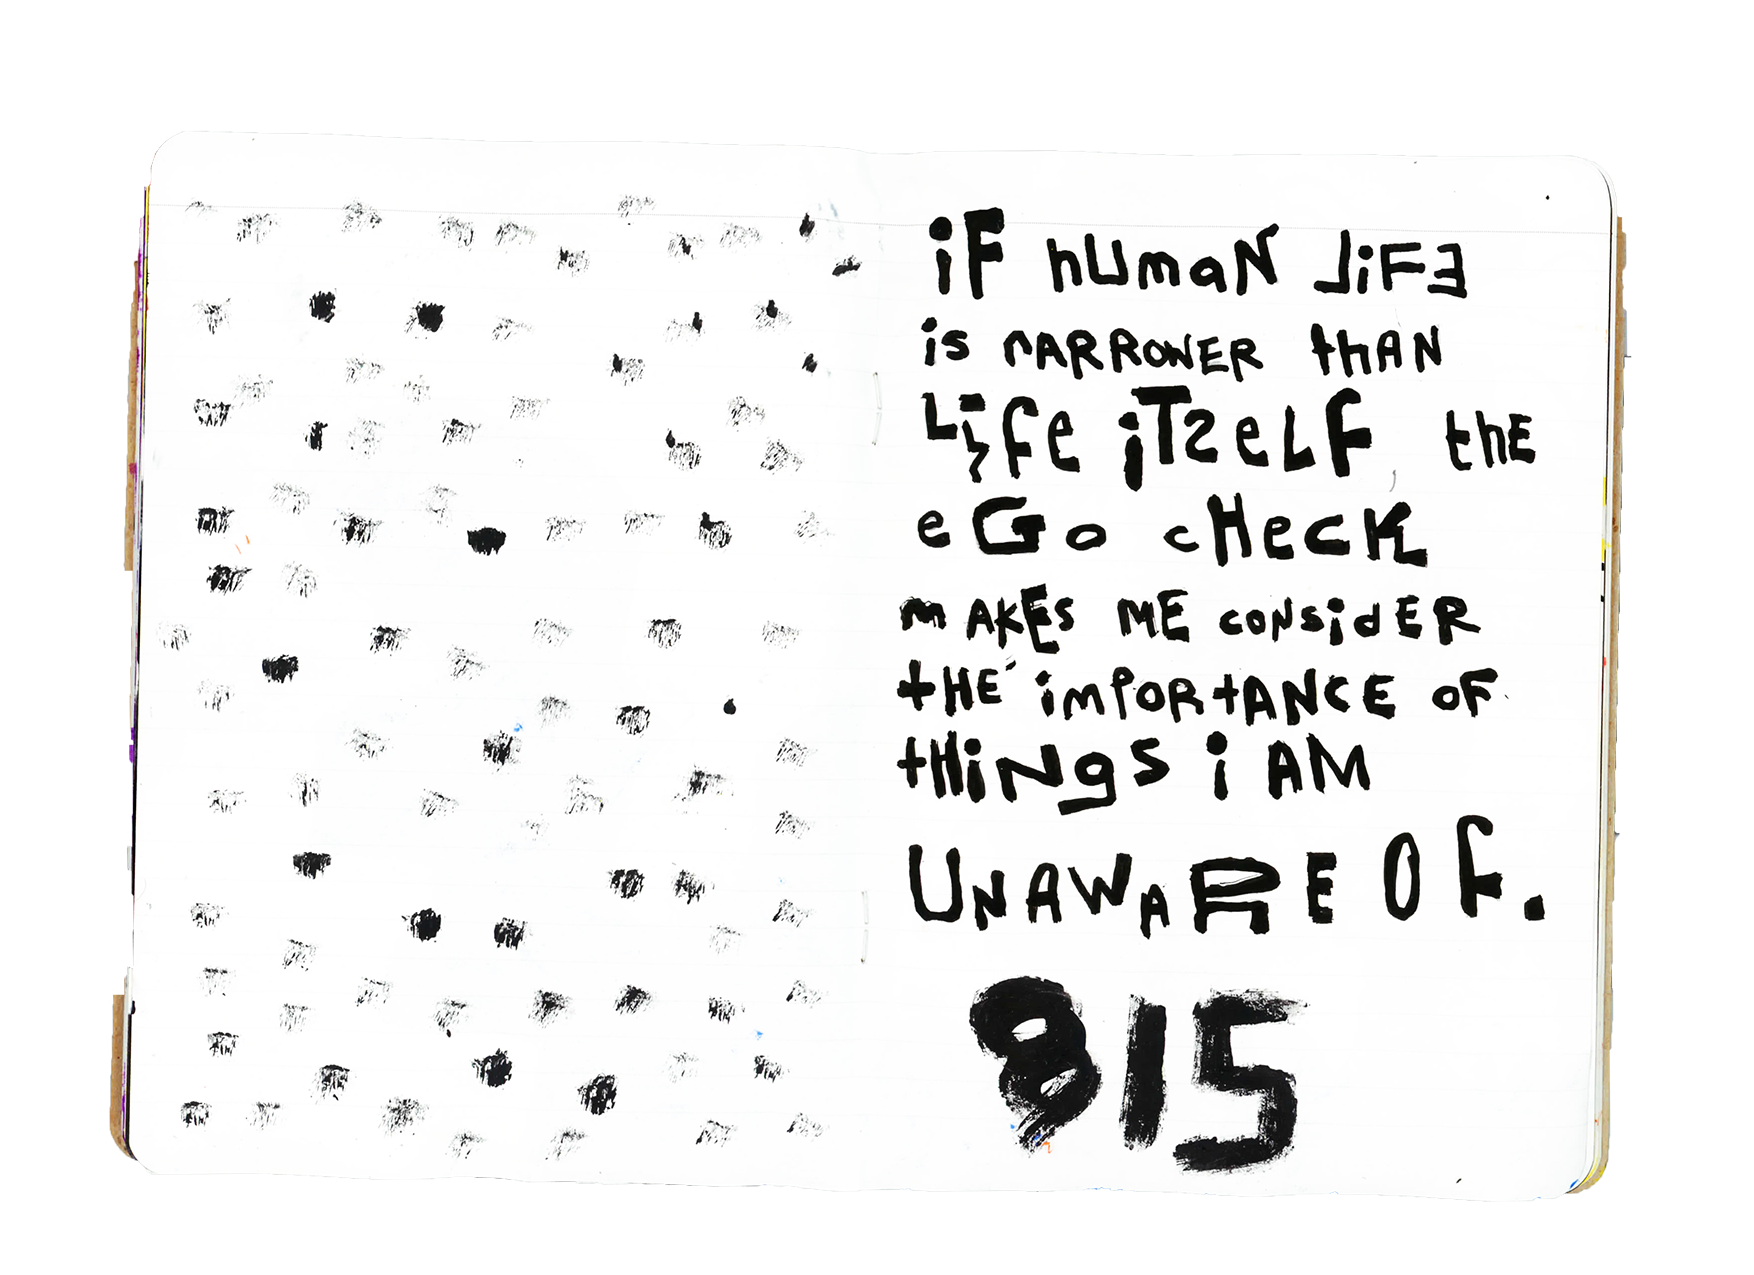 iF hUmaN LiFE
is nARROWER thAN
Life iTSeLF, thE
eGo cHecK
mAKES ME coNSidER
tHE impORtANCE OF
tHiNgS i AM
UNAWARE OF.
815